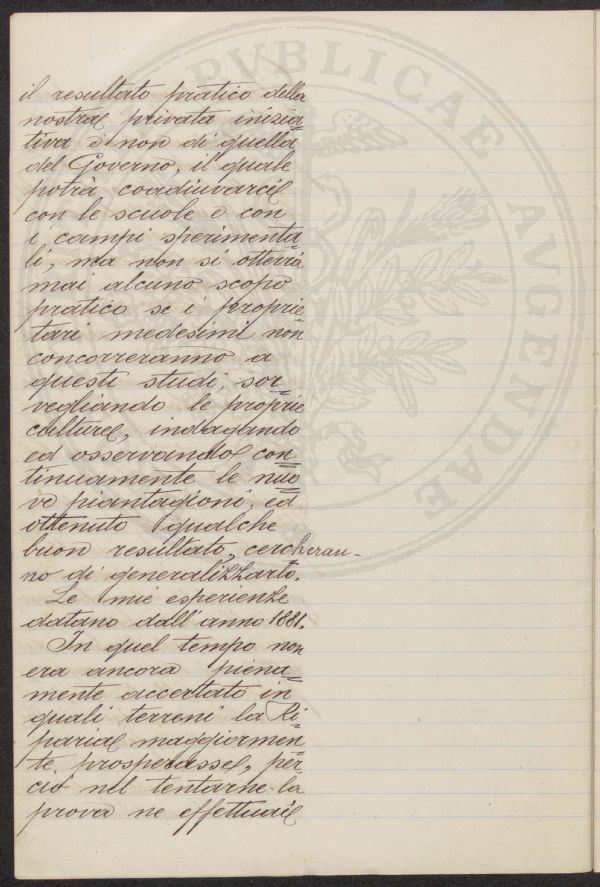 il resultato pratico della
nostra privata inizia=
tiva e non di quella
del Governo, il quale
potrà coadiuvarci
con le scuole e con
i campi sperimenta=
li, ma non si otterrà
mai alcuno scopo
pratico se i proprie=
tari medesimi non
concorreranno a
questi studi, sor=
vegliando le proprie
culture, indagando
ed osservando con=
tinuamente le nuo=
ve piantagioni, ed
ottenuto qualche
buon resultato, cercheran-
no di generalizzarlo.
Le mie esperienze
datano dall'anno 1881.
In quel tempo non
era ancora piena=
mente accertato in
quali terreni la Ri=
paria maggiormen=
te prosperasse, per=
ciò nel tentarne la
prova ne effettuai
PVBLICAE AVGENDAE